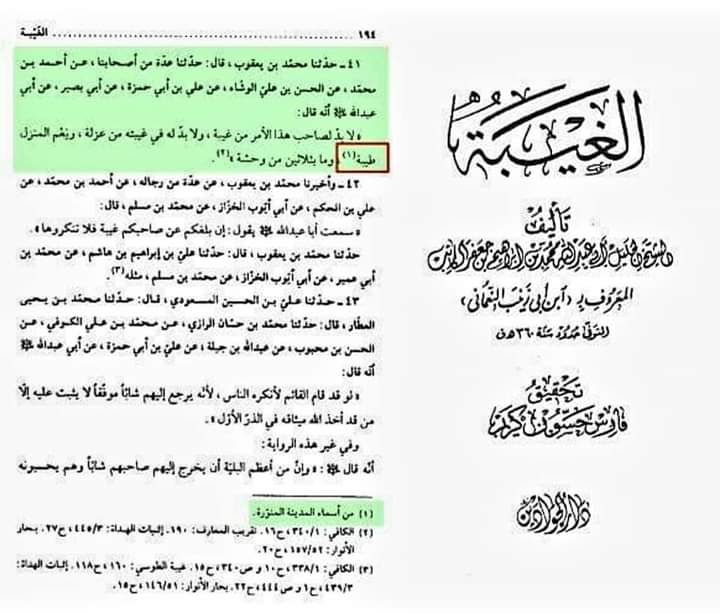 ١٩٤ ........ الغَيْبَة
٤١ - حدّثنا محمّد بن يعقوب ، قال: حدّثنا عدّة من أصحابنا ، عن أحمد بن
محمّد ، عن الحسن بن عليّ الوشّاء ، عن علي بن أبي حمزة ، عن أبي بصير ، عن أبي
عبدالله ﷺ أنّه قال:
« لا بدّ لصاحب هذا الأمر من غيبة ، ولا بدّ له في غيبته من عزلة ، ونِعْم المنزل
طيبة(١) ، وما بثلاثين من وحشة »(٢).
٤٢ - وأخبرنا محمّد بن يعقوب ، عن عدّة من رجاله ، عن أحمد بن محمّد ، عن
علي بن الحكم ، عن أبي أيّوب الخزّاز ، عن محمّد بن مسلم ، قال:
« سمعت أبا عبدالله ﷺ يقول: إن بلغكم عن صاحبكم غيبة فلا تنكروها ».
حدّثنا محمّد بن يعقوب ، قال: حدّثنا عليّ بن إبراهيم بن هاشم ، عن محمّد بن
أبي عمير ، عن أبي أيّوب الخزّاز ، عن محمّد بن مسلم ، مثله(٣).
٤٣ - حدّثنا عليّ بن الحسين المسعودي ، قال: حدّثنا محمّد بن يحيى
العطّار ، قال: حدّثنا محمّد بن حسّان الرازي ، عن محمّد بن علي الكوفي ، عن
الحسن بن محبوب ، عن عبدالله بن جبلة ، عن عليّ بن أبي حمزة ، عن أبي عبدالله ﷺ
أنّه قال:
« لو قد قام القائم لأنكره الناس ، لأنّه يرجع إليهم شابّاً موفّقاً لا يثبت عليه إلّا
من قد أخذ الله ميثاقه في الذرّ الأوّل ».
وفي غير هذه الرواية:
أنّه قال ﷺ : « وإنّ من أعظم البليّة أن يخرج إليهم صاحبهم شابّاً وهم يحسبونه
(١) من أسماء المدينة المنوّرة.
(٢) الكافي: ٣٤٠/١، ح١٦. تقريب المعارف: ١٩٠. إثبات الهداة: ٤٤٥/٣، ح٢٧. بحار
الأنوار: ١٥٧/٥٢، ح٢٠.
(٣) الكافي: ٣٣٨/١، ح١٠ و ص٣٤٠، ح١٥. غيبة الطوسي: ١٦٠، ح١١٨. إثبات الهداة:
٤٣٩/٣، ح١ و ص٤٤٤، ح٢٢. بحار الأنوار: ١٤٦/٥١، ح١٥.
الغيبة
تأليف
الشيخ الجليل أبي عبد الله محمد بن إبراهيم بن جعفر الكاتب
المعروف بـ «ابن أبي زينب النعماني»
المتوفى حدود سنة ٣٦٠ هـ ق
تحقيق
فارس حسون كريم
دار الجوادين